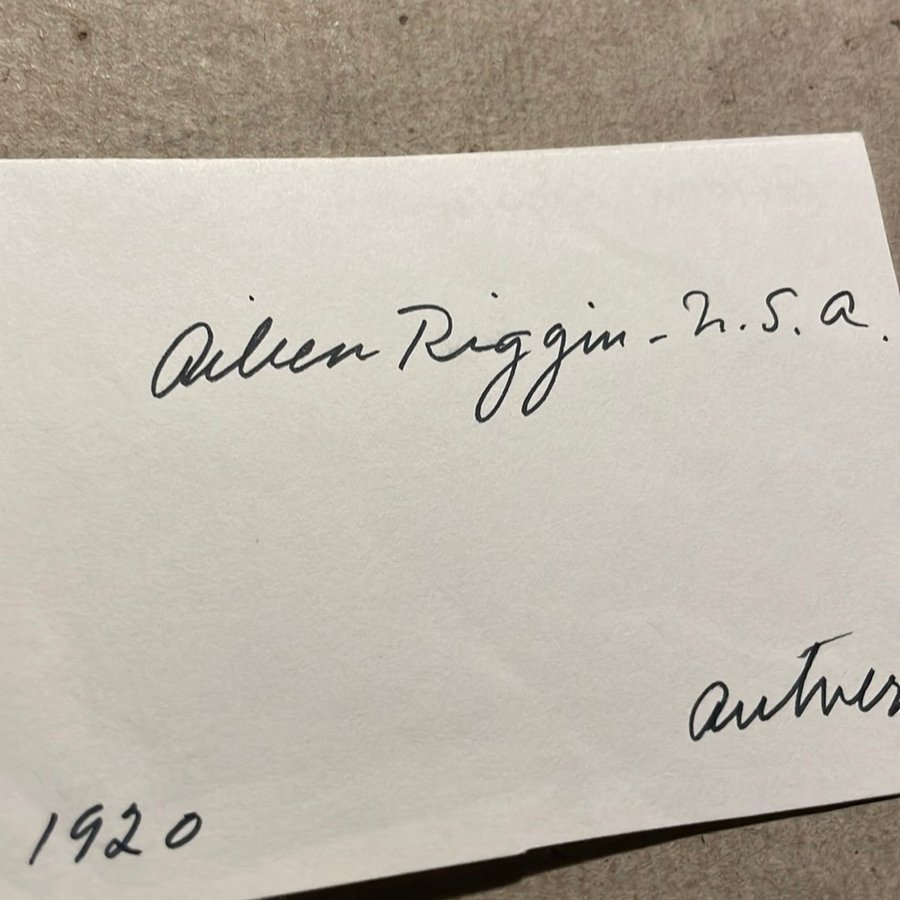 Aileen Riggin - U.S.A.
Antwer
1920